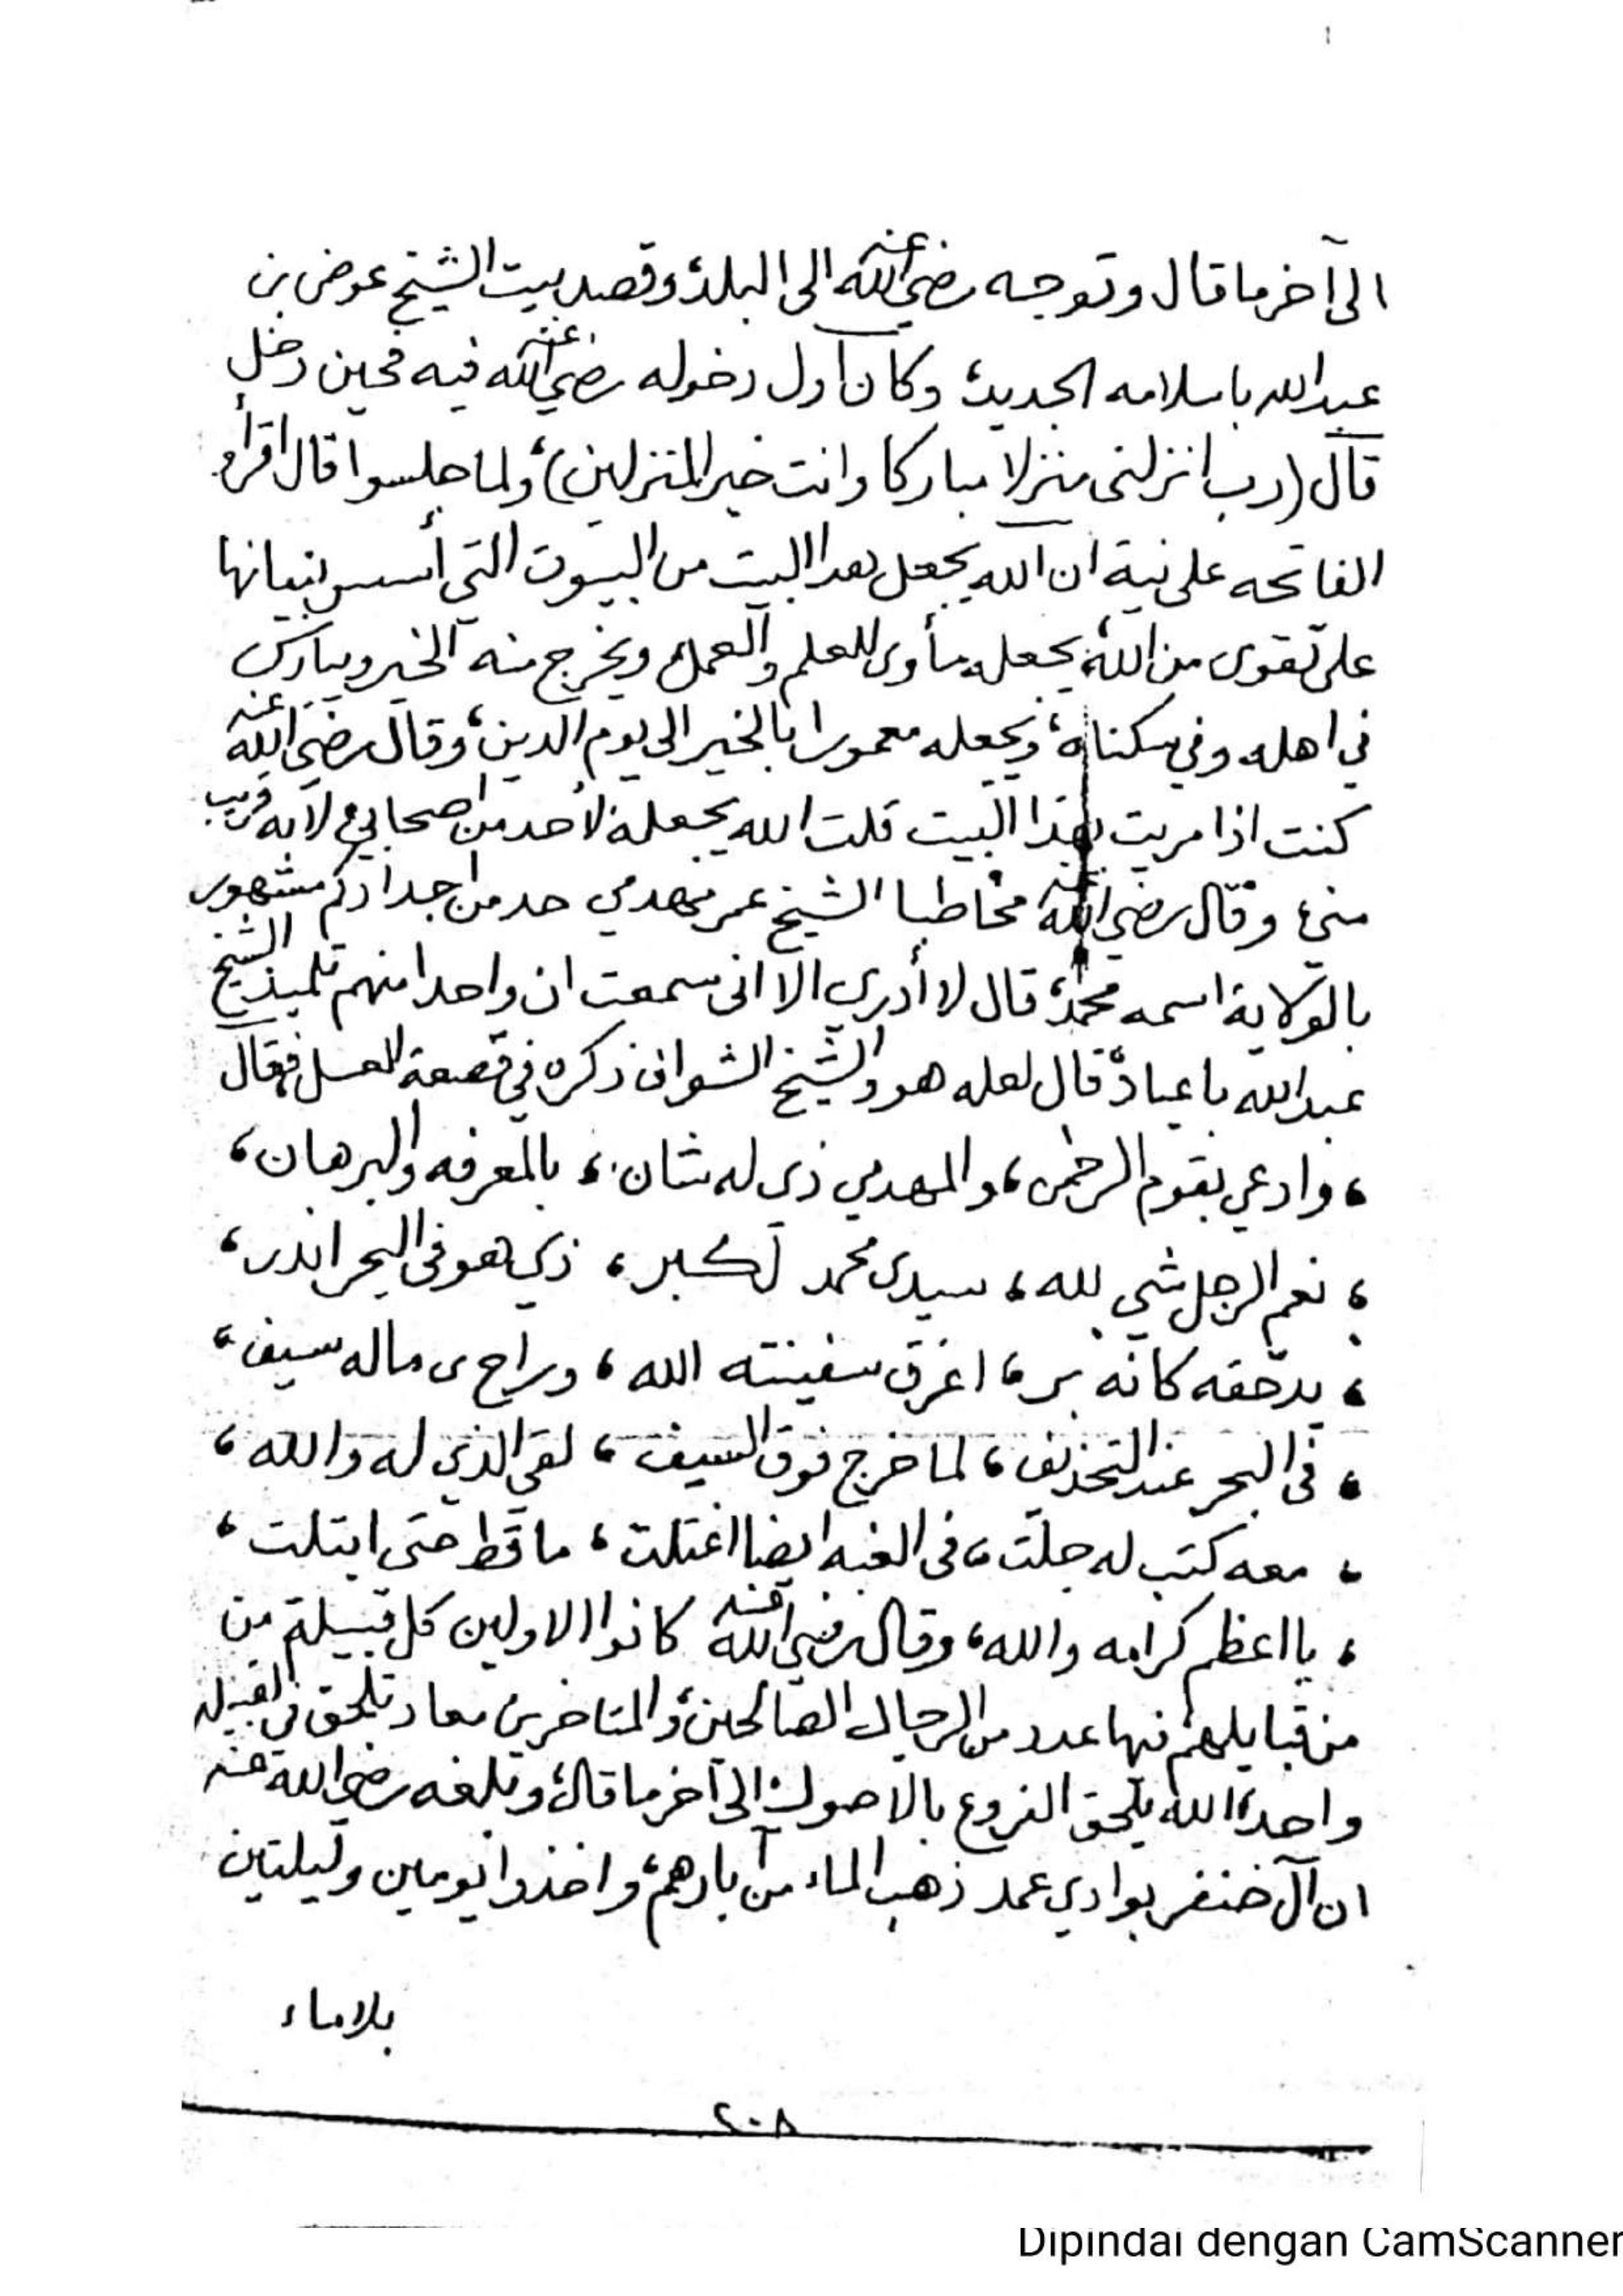 الى آخر ما قال وتوجه رضي الله عنه الى البلد، وقصد بيت الشيخ عوض بن
عبدالله باسلامه الجديد، وكان أول دخوله رضي الله عنه فيه فحين دخل
قال (رب انزلنى منزلا مباركا وانت خير المنزلين)، ولما جلسوا قال اقرأو
الفاتحه على نية ان الله يجعل هدا البيت من البيوت التي أسس بنيانها
على تقوى من الله، يجعله مأوى للعلم والعمل ويخرج منه الخير ويبارك
في اهله وفي سكناه، ويجعله معمورا بالخير الى يوم الدين، وقال رضي الله عنه
كنت اذا مريت بهذا البيت قلت الله يجعله لأحد من اصحابي، لأنه قريب
مني، وقال رضي الله عنه مخاطبا الشيخ عمر مهدمي حد من اجدادكم مشهور
بالولاية اسمه محمد، قال لا أدري الا انى سمعت ان واحدا منهم تلميذ الشيخ
عبدالله باعباد، قال لعله هو والشيخ الشواف ذكره في قصعة العسل فقال
، وادعي بقوم الرحمن، والمهدمي ذى له شان، بالمعرفه والبرهان،
، نعم الرجل شي لله، سيدى محمد لكبر، ذي هو فى البحر اندر،
، كانه بر، اغرق سفينته الله، وراح ى ماله سيف،
، فى البحر عند، لما خرج فوق السيف، لقى الذي له والله،
، معه كتب له جلت، فى الغبه ايضا اعتلت، ما قط حتى ابتلت،
، يا اعظم كرامه والله، وقال رضي الله عنه كانوا الاولين كل قبيلة من
من قبايلهم فيها عدد من الرجال الصالحين، والمتاخرين معاد تلحق في القبيله
واحد، الله يلحق الفروع بالاصول، الى آخر ما قال، وبلغه رضي الله عنه
ان آل خنفر بوادي عمد ذهب الماء من آبارهم، واخذوا يومين وليلتين
بلا ماء
٢٠٨
Dipindai dengan CamScanner